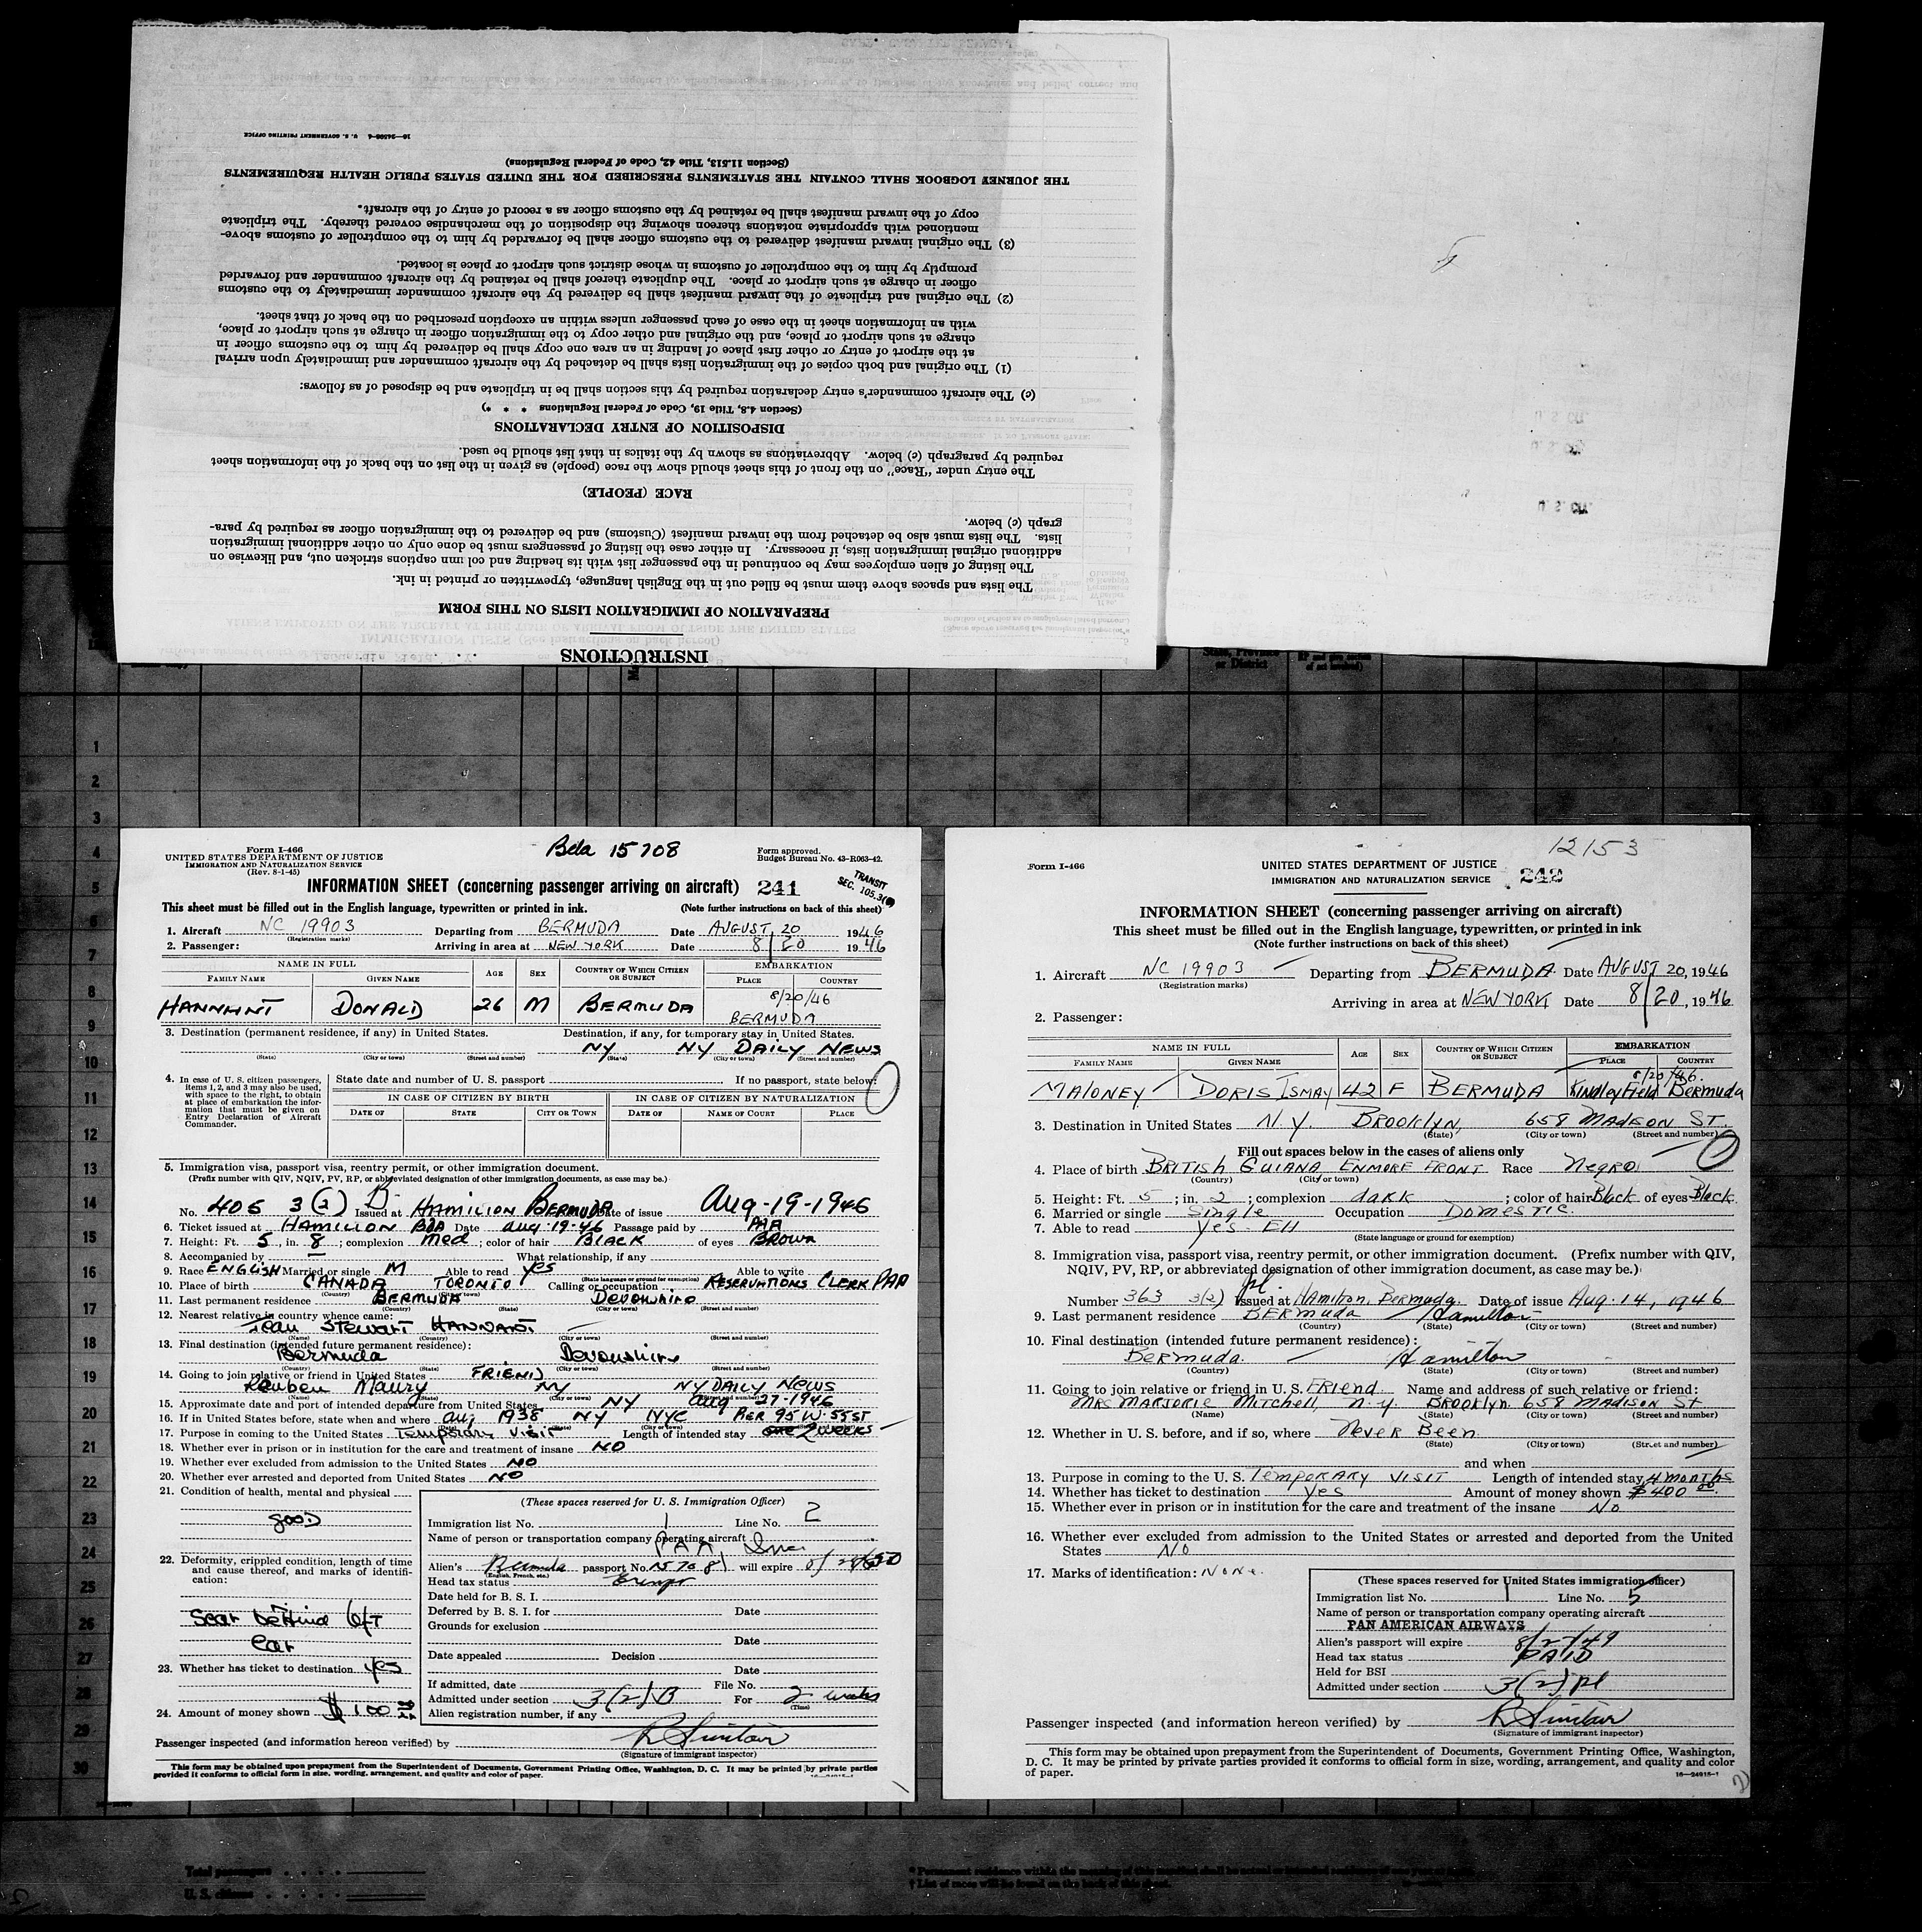 INSTRUCTIONS
PREPARATION OF IMMIGRATION LISTS ON THIS FORM
The lists and spaces above them must be filled out in the English language, typewritten or printed in ink.
The listing of alien employees may be continued in the passenger list with its heading and col umn captions stricken out, and likewise on
additional original immigration lists, if necessary. In either case the listing of passengers must be done only on other additional immigration
lists. The lists must also be detached from the inward manifest (Customs) and be delivered to the immigration officer as required by para-
graph (c) below.
RACE (PEOPLE)
The entry under "Race" on the front of this sheet should show the race (people) as given in the list on the back of the information sheet
required by paragraph (c) below. Abbreviations as shown by the italics in that list should be used.
DISPOSITION OF ENTRY DECLARATIONS
(Section 4.8, Title 19, Code of Federal Regulations * * *)
(c) The aircraft commander's entry declaration required by this section shall be in triplicate and be disposed of as follows:
(1) The original and both copies of the immigration lists shall be detached by the aircraft commander and immediately upon arrival
at the airport of entry or other first place of landing in an area one copy shall be delivered by him to the customs officer in
charge at such airport or place, and the original and other copy to the immigration officer in charge at such airport or place,
with an information sheet in the case of each passenger unless within an exception prescribed on the back of that sheet.
(2) The original and triplicate of the inward manifest shall be delivered by the aircraft commander immediately to the customs
officer in charge at such airport or place. The duplicate thereof shall be retained by the aircraft commander and forwarded
promptly by him to the comptroller of customs in whose district such airport or place is located.
(3) The original inward manifest delivered to the customs officer shall be forwarded by him to the comptroller of customs above-
mentioned with appropriate notations thereon showing the disposition of the merchandise covered thereby. The triplicate
copy of the inward manifest shall be retained by the customs officer as a record of entry of the aircraft.
THE JOURNEY LOGBOOK SHALL CONTAIN THE STATEMENTS PRESCRIBED FOR THE UNITED STATES PUBLIC HEALTH REQUIREMENTS
(Section 11.513, Title 42, Code of Federal Regulations)
16—24598-4 U. S. GOVERNMENT PRINTING OFFICE
State, Province
or District
1
2
3
4
5
6
7
8
9
10
11
12
13
14
15
16
17
18
19
20
21
22
23
24
25
26
27
28
29
30
Form I-466
UNITED STATES DEPARTMENT OF JUSTICE
IMMIGRATION AND NATURALIZATION SERVICE
(Rev. 8-1-45)
Bda 15708
Form approved.
Budget Bureau No. 43-R063-42.
INFORMATION SHEET (concerning passenger arriving on aircraft) 241
TRANSIT
SEC. 105.3
This sheet must be filled out in the English language, typewritten or printed in ink. (Note further instructions on back of this sheet)
1. Aircraft NC 19903 Departing from BERMUDA Date AUGUST 20 1946
(Registration marks)
2. Passenger: Arriving in area at NEW YORK Date 8/20 1946
NAME IN FULL AGE SEX COUNTRY OF WHICH CITIZEN OR SUBJECT EMBARKATION
FAMILY NAME GIVEN NAME PLACE COUNTRY
HANNANT DONALD 26 M BERMUDA 8/20/46 BERMUDA
3. Destination (permanent residence, if any) in United States. Destination, if any, for temporary stay in United States.
NY NY DAILY NEWS
(State) (City or town) (Street and number) (State) (City or town) (Street and number)
4. In case of U. S. citizen passengers, items 1, 2, and 3 may also be used, with space to the right, to obtain at place of embarkation the information that must be given on Entry Declaration of Aircraft Commander.
State date and number of U. S. passport If no passport, state below:
IN CASE OF CITIZEN BY BIRTH IN CASE OF CITIZEN BY NATURALIZATION
DATE OF STATE CITY OR TOWN DATE OF NAME OF COURT PLACE
5. Immigration visa, passport visa, reentry permit, or other immigration document.
(Prefix number with QIV, NQIV, PV, RP, or abbreviated designation of other immigration documents, as case may be.)
No. 405 3(2) B Issued at HAMILTON BERMUDA Date of issue Aug-19-1946
6. Ticket issued at HAMILTON BDA Date Aug-19-46 Passage paid by PAA
7. Height: Ft. 5, in. 8; complexion med; color of hair BLACK of eyes BROWN
8. Accompanied by — What relationship, if any
9. Race ENGLISH Married or single M Able to read yes Able to write
(State language or ground for exemption)
10. Place of birth CANADA TORONTO Calling or occupation RESERVATIONS CLERK PAA
(Country) (City or town)
11. Last permanent residence BERMUDA Devonshire
(Country) (State) (City or town) (Street and number)
12. Nearest relative in country whence came:
Jean STEWART HANNANT
(Name) (Country) (City or town) (Street and number)
13. Final destination (intended future permanent residence):
Bermuda Devonshire
(Country) (State) (City or town) (Street and number)
14. Going to join relative or friend in United States FRIEND
Reuben Maury NY NY DAILY NEWS
(Name) (State) (City or town) (Street and number)
15. Approximate date and port of intended departure from United States NY Aug 27-1946
16. If in United States before, state when and where Aug 1938 NY NYC PIER 95 W. 55 ST
17. Purpose in coming to the United States Temporary Visit Length of intended stay 2 weeks
18. Whether ever in prison or in institution for the care and treatment of insane NO
19. Whether ever excluded from admission to the United States NO
20. Whether ever arrested and deported from United States NO
21. Condition of health, mental and physical
GOOD
22. Deformity, crippled condition, length of time and cause thereof, and marks of identification:
Scar behind left
ear
23. Whether has ticket to destination yes
24. Amount of money shown $100
(These spaces reserved for U. S. Immigration Officer)
Immigration list No. 1 Line No. 2
Name of person or transportation company operating aircraft PAA
Alien's Bermuda passport No. 15708 will expire
(English, French, etc.)
Head tax status Exempt
Date held for B. S. I.
Deferred by B. S. I. for Date
Grounds for exclusion
Date
Date appealed Decision
Date
If admitted, date File No.
Admitted under section 3(2)B For 2 weeks
(Time)
Alien registration number, if any
Passenger inspected (and information hereon verified) by R Sinclair
(Signature of immigrant inspector)
This form may be obtained upon prepayment from the Superintendent of Documents, Government Printing Office, Washington, D. C. It may be printed by private parties
provided it conforms to official form in size, wording, arrangement, and quality and color of paper.
12153
Form I-466
UNITED STATES DEPARTMENT OF JUSTICE
IMMIGRATION AND NATURALIZATION SERVICE 242
INFORMATION SHEET (concerning passenger arriving on aircraft)
This sheet must be filled out in the English language, typewritten, or printed in ink
(Note further instructions on back of this sheet)
1. Aircraft NC 19903 Departing from BERMUDA Date AUGUST 20, 1946
(Registration marks)
Arriving in area at NEW YORK Date 8/20, 1946
2. Passenger:
NAME IN FULL AGE SEX COUNTRY OF WHICH CITIZEN OR SUBJECT EMBARKATION
FAMILY NAME GIVEN NAME PLACE COUNTRY
8/20/46
MALONEY DORIS ISMAY 42 F BERMUDA Kindley Field Bermuda
3. Destination in United States N.Y. BROOKLYN, 658 MADISON ST.
(State) (City or town) (Street and number)
Fill out spaces below in the cases of aliens only
4. Place of birth BRITISH GUIANA ENMORE FRONT Race Negro
(Country) (City or town)
5. Height: Ft. 5; in. 2; complexion dark; color of hair Black of eyes Black
6. Married or single Single Occupation DOMESTIC.
7. Able to read Yes - EH
(State language or ground for exemption)
8. Immigration visa, passport visa, reentry permit, or other immigration document. (Prefix number with QIV,
NQIV, PV, RP, or abbreviated designation of other immigration document, as case may be.)
Number 363 3(2) Pl Issued at Hamilton, Bermuda. Date of issue Aug. 14, 1946
9. Last permanent residence BERMUDA Hamilton
(Country) (State) (City or town) (Street and number)
10. Final destination (intended future permanent residence):
Bermuda. Hamilton
(Country) (State) (City or town) (Street and number)
11. Going to join relative or friend in U. S. FRIEND. Name and address of such relative or friend:
MRS MARJORIE Mitchell, N.Y. BROOKLYN. 658 MADISON ST
(Name) (State) (City or town) (Street and number)
12. Whether in U. S. before, and if so, where Never Been
(State) (Street and number)
and when
13. Purpose in coming to the U. S. TEMPORARY VISIT Length of intended stay 4 months
14. Whether has ticket to destination Yes Amount of money shown $400 00
15. Whether ever in prison or in institution for the care and treatment of the insane No
16. Whether ever excluded from admission to the United States or arrested and deported from the United
States No
17. Marks of identification: None.
(These spaces reserved for United States immigration officer)
Immigration list No. 1 Line No. 5
Name of person or transportation company operating aircraft
PAN AMERICAN AIRWAYS
Alien's passport will expire 8/2/49
Head tax status PAID
Held for BSI
Admitted under section 3(2) Pl
Passenger inspected (and information hereon verified) by R Sinclair
(Signature of immigrant inspector)
This form may be obtained upon prepayment from the Superintendent of Documents, Government Printing Office, Washington,
D. C. It may be printed by private parties provided it conforms to official form in size, wording, arrangement, and quality and color
of paper.
16—24915-1
Total passengers
U. S. citizens
* Permanent residence within the meaning of this manifest shall be actual or intended residence of one year or more.
† List of races will be found on the back of this sheet.